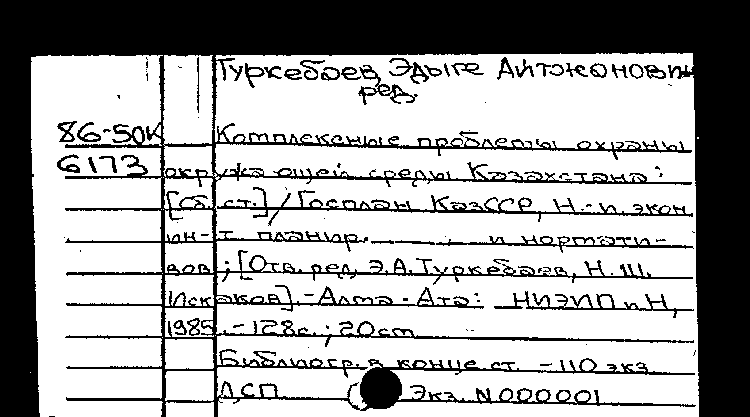 Туркебаев, Эдыге Айтжонович
ред.
86-50К Комплексные проблемы охраны
6173 окружающей среды Казахстана:
[Сб. ст.] / Госплан КазССР, Н.-и. экон
ин-т планир. и нормати-
вов; [Отв. ред. Э.А. Туркебаев, Н. Ш.
Искаков]. - Алма-Ата: НИЭИПиН,
1985. - 128с.; 20см
Библиогр. в конце ст. - 110 экз
ДСП Экз. N000001